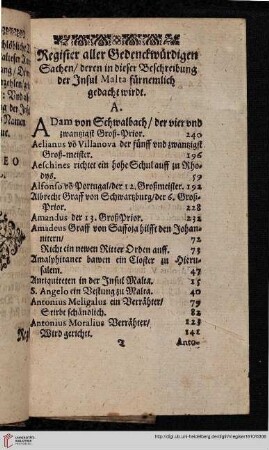 Register aller Gedenckwürdigen
Sachen / deren in dieser Beschreibung
der Insul Malta fürnemlich
gedacht wirdt.
A.
ADam von Schwalbach / der vier vnd
zwantzigst Groß-Prior. 240
Aelianus võ Villanova der fünff vnd zwantzigst
Groß-meister. 196
Aeschines richtet ein hohe Schul auff zu Rho-
dys. 59
Alfonso võ Portugal / der 12. Großmeister. 192
Albrecht Graff von Schwartzburg / der 6. Groß-
Prior. 228
Amandus der 13. GroßPrior. 232
Amadeus Graff von Saffoja hilfft den Johan-
nitern / 72
Richt ein newen Ritter Orden auff. 73
Amalphitaner bawen ein Closter zu Hieru-
salem. 47
Antiquiteten in der Insul Malta. 15
S. Angelo ein Vestung zu Malta. 40
Antonius Meligalus ein Verrähter / 79
Stirbt schändlich. 82
Antonius Moralius Verrähter / 123
Wird gericht. 141
Anto-